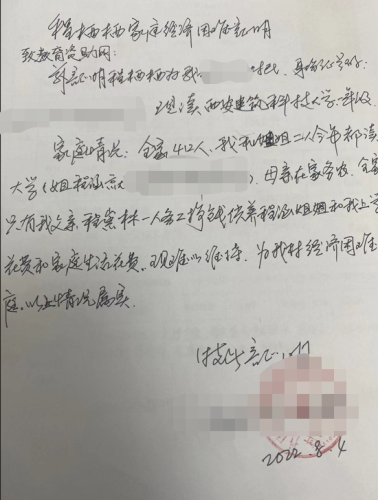 程栖栖家庭经济困难证明
致教育资助网:
兹证明程栖栖为我 村民,身份证号码:
现读西安建筑科技大学 年级,
家庭情况:全家4口人,我和姐姐二人今年都读
大学(姐程涵 ),母亲在家务农,全家
只有我父亲程 林一人务工挣钱供养程涵姐姐和我上学
花费和家庭生活花费,现难以维持,为我村经济困难家
庭,以上情况属实.
特此证明
2022.8.4